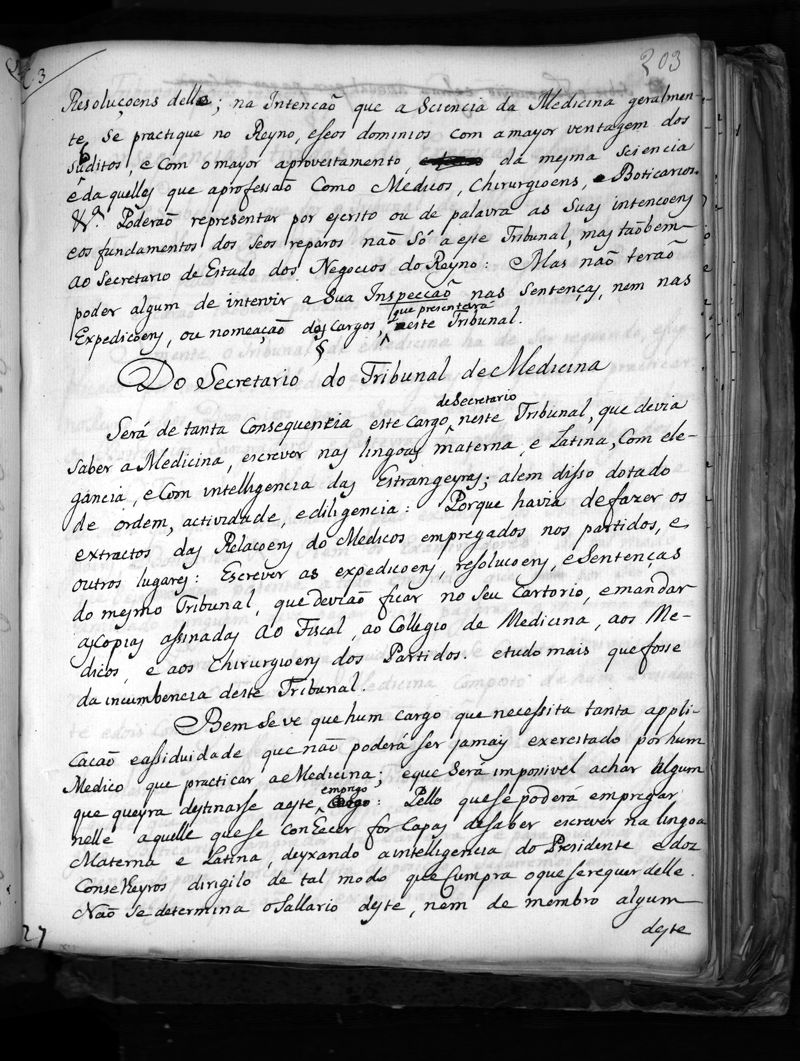 303
Resoluçoens delle; na Intencaõ que a Sciencia da Medicina geralmen-
te, se practique no Reyno, eseos dominios com amayor ventagem dos
suditos, e com o mayor aproveitamento, da mesma sciencia
e da quelles que aprofessaõ Como Medicos, Chirurgioens, e Boticarios.
&ª. Poderaõ representar por escrito ou de palavra as Suas intencoens
eos fundamentos dos Seos reparos naõ Só a este Tribunal, mas taõbem
ao Secretario de Estado dos Negocios do Reyno: Mas naõ teraõ
poder algum de intervir a Sua Inspecçaõ nas Sentenças, nem nas
que presenteira
Expediçoens, ou nomeaçaõ dos Cargos, neste Tribunal.
§
Do Secretario do Tribunal de Medicina
de Secretario
Será de tanta Consequencia este Cargo, neste Tribunal, que devia
saber a Medicina, escrever nas lingoas materna, e Latina, Com ele-
gancia, e Com intelligencia das Estrangeyras; alem disso dotado
de ordem, actividade, e diligencia: Porque havia defazer os
extractos das Relacoens do Medicos empregados nos partidos, e
outros lugares: Escrever as expedicoens, resolucoens, e Sentenças
do mesmo Tribunal, que deviaõ ficar no Seu Cartorio, e mandar
ascopias assinadas ao Fiscal, ao Collegio de Medicina, aos Me-
dicos, e aos Chirurgioens dos Partidos. etudo mais que fosse
da incumbencia deste Tribunal.
Bem Se ve que hum cargo que necessita tanta appli-
cacaõ eassiduidade que naõ poderá ser jamais exercitado por hum
Medico que practicar aeMedicina; eque Será impossivel achar algum
emprego
que queyra destinarse aeste Cargo: Pello quese poderá empregar
nelle aquelle quese conhecer for Capas desaber escrever na lingoa
Materna e Latina, deyxando aintelligencia do Presidente e dos
Conselheyros dirigilo de tal modo que Cumpra oque serequer delle.
Naõ Se determina o Sallario deste, nem de membro algum
deste
27